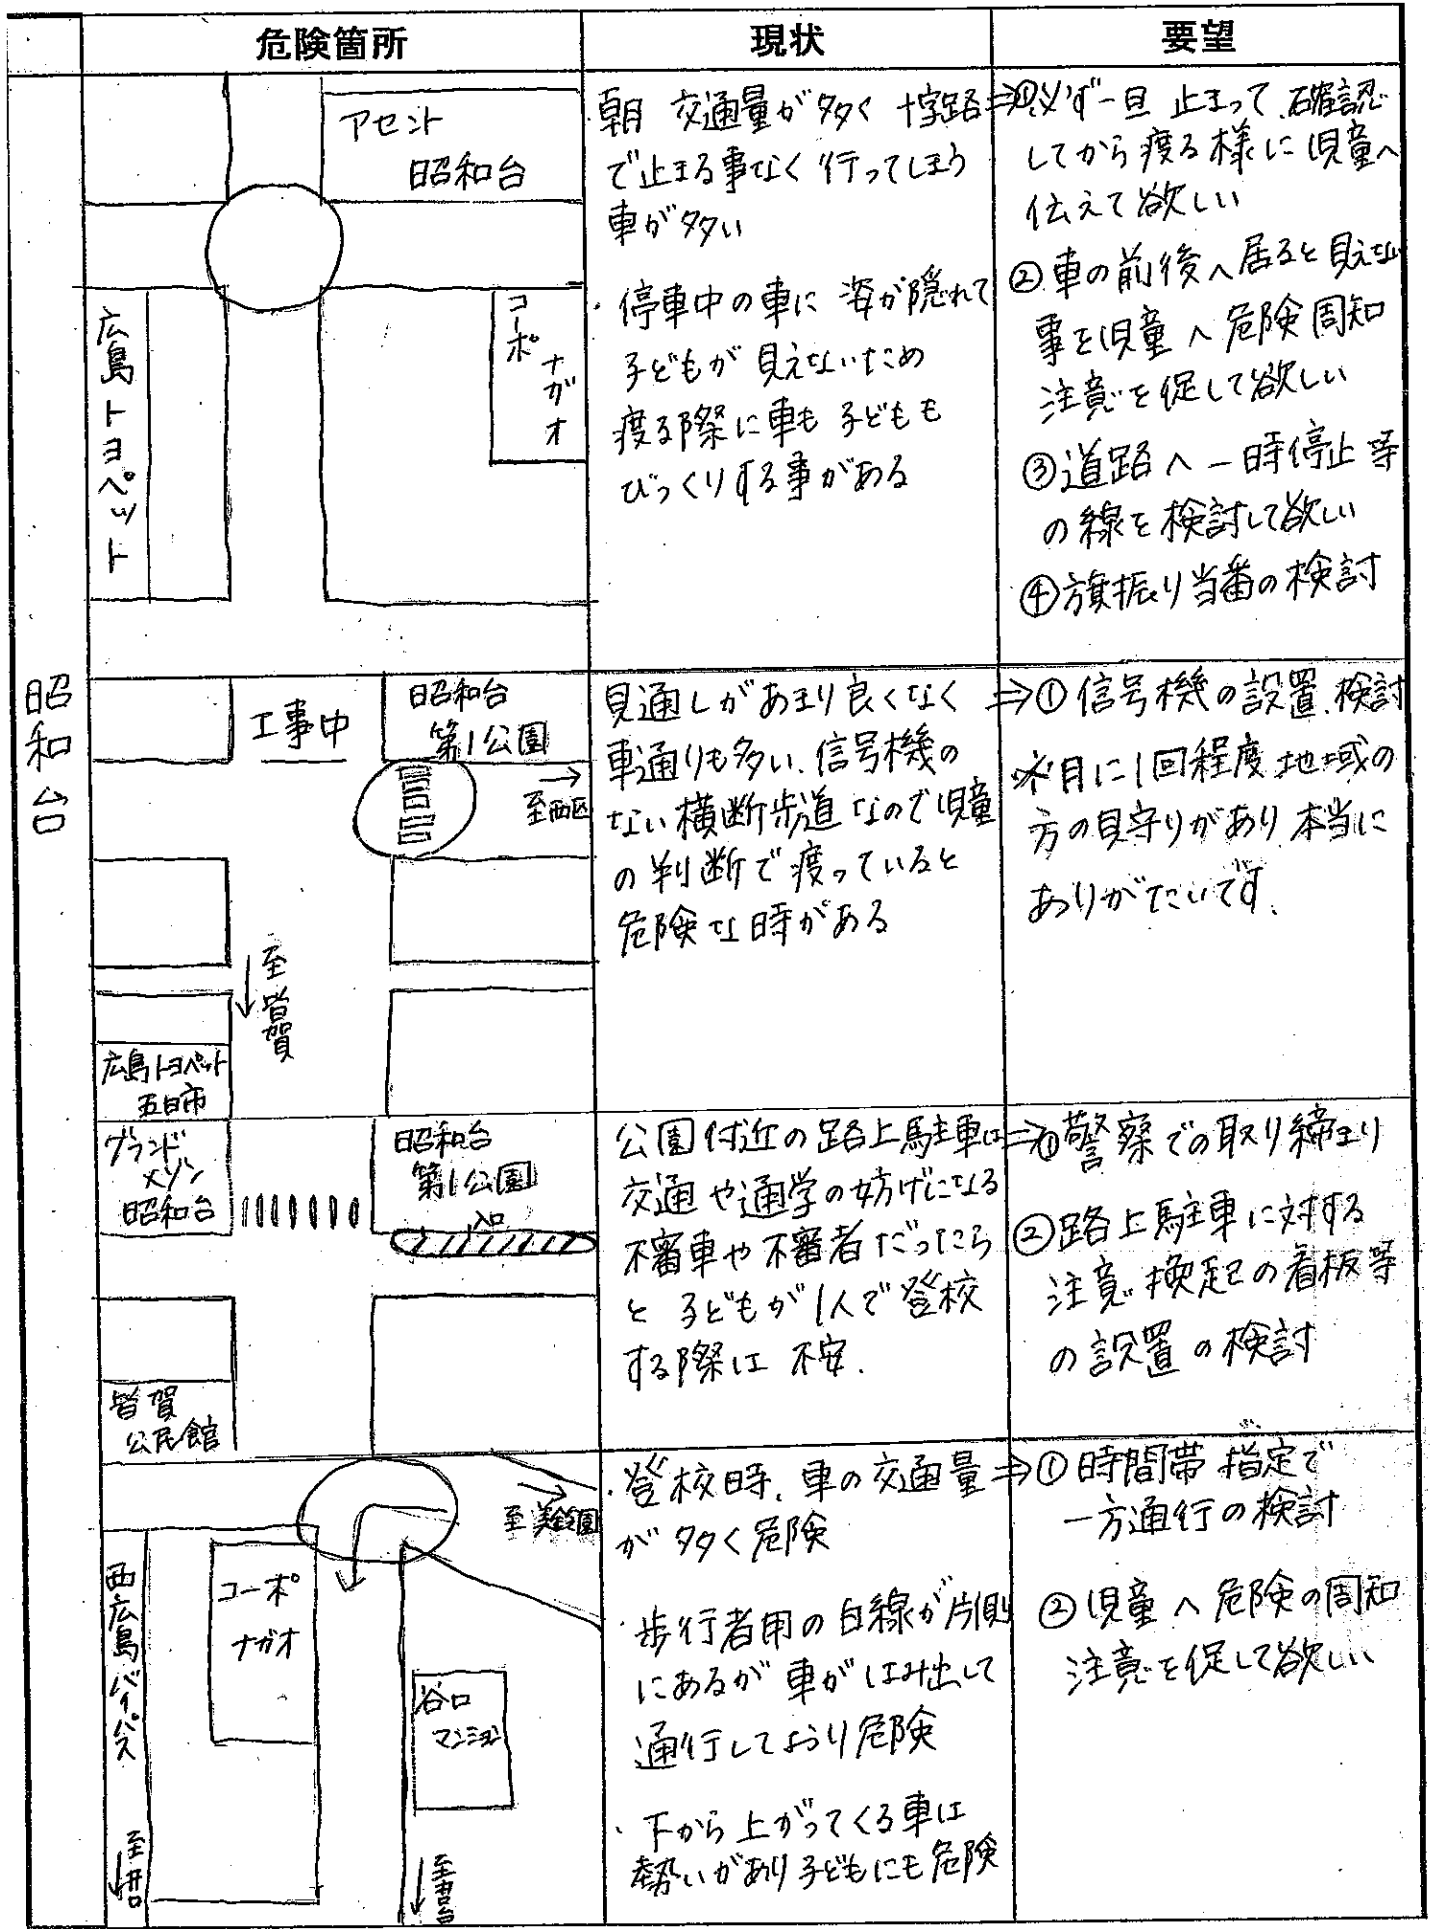 危険箇所
現状
要望
昭和台
アセント
昭和台
広島トヨペット
コーポ
ナガオ
朝 交通量が多く 十字路
で止まる事なく行ってしまう
車が多い
・停車中の車に 姿が隠れて
子どもが見えないため
渡る際に車も子どもも
びっくりする事がある
⇒①必ず一旦 止まって、確認
してから渡る様に児童へ
伝えて欲しい
②車の前後へ居ると見えない
事を児童へ危険周知
注意を促して欲しい
③道路へ一時停止等
の線を検討して欲しい
④旗振り当番の検討
工事中
昭和台
第1公園
至西区
至皆賀
広島トヨペット
五日市
見通しがあまり良くなく
車通りも多い、信号機の
ない横断歩道なので児童
の判断で渡っていると
危険な時がある
⇒①信号機の設置、検討
※月に1回程度 地域の
方の見守りがあり 本当に
ありがたいです.
グランド
メゾン
昭和台
昭和台
第1公園
入口
皆賀
公民館
公園付近の路上駐車は
交通や通学の妨げになる
不審車や不審者だったら
と 子どもが1人で登校
する際は 不安.
⇒①警察での取り締まり
②路上駐車に対する
注意換起の看板等
の設置の検討
至美鈴園
西広島バイパス
コーポ
ナガオ
谷口
マンション
至井口
・登校時、車の交通量
が多く危険
・歩行者用の白線が片側
にあるが車がはみ出して
通行してより危険
・下から上がってくる車は
勢いがあり子どもにも危険
⇒①時間帯指定で
一方通行の検討
②児童へ危険の周知
注意を促して欲しい